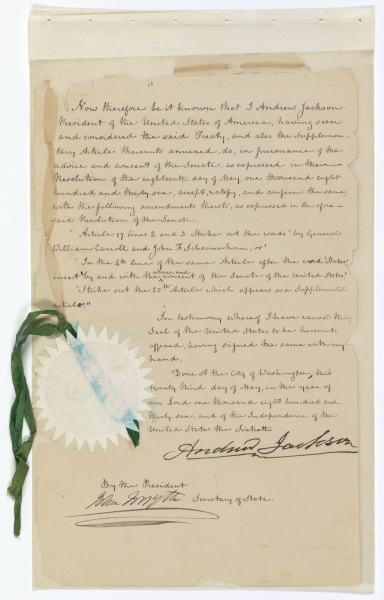 Now therefore be it known that I Andrew Jackson
President of the United States of America, having seen
and considered the said Treaty, and also the Supplemen-
tary Article thereunto annexed, do, in pursuance of the
advice and consent of the Senate, as expressed in their
Resolution of the eighteenth day of May one thousand eight
hundred and thirty six, accept, ratify, and confirm the same
with the following amendments thereto, as expressed in the afore-
said Resolution of the Senate.
"Article 17 lines 2 and 3 Strike out the words 'by General
William Carroll and John F. Schermerhorn, or'
"In the 4th line of the same Article after the word 'States'
insert 'by and with the advice and consent of the Senate of the United States'
"Strike out the 20th Article which appears as a Supplemental
article."
In testimony whereof I have caused the
Seal of the United States to be hereunto
affixed, having signed the same with my
hand.
Done at the City of Washington, this
twenty third day of May, in the year of
our Lord one thousand eight hundred and
thirty six, and of the Independence of the
United States the Sixtieth
Andrew Jackson
By the President
John Forsyth Secretary of State.